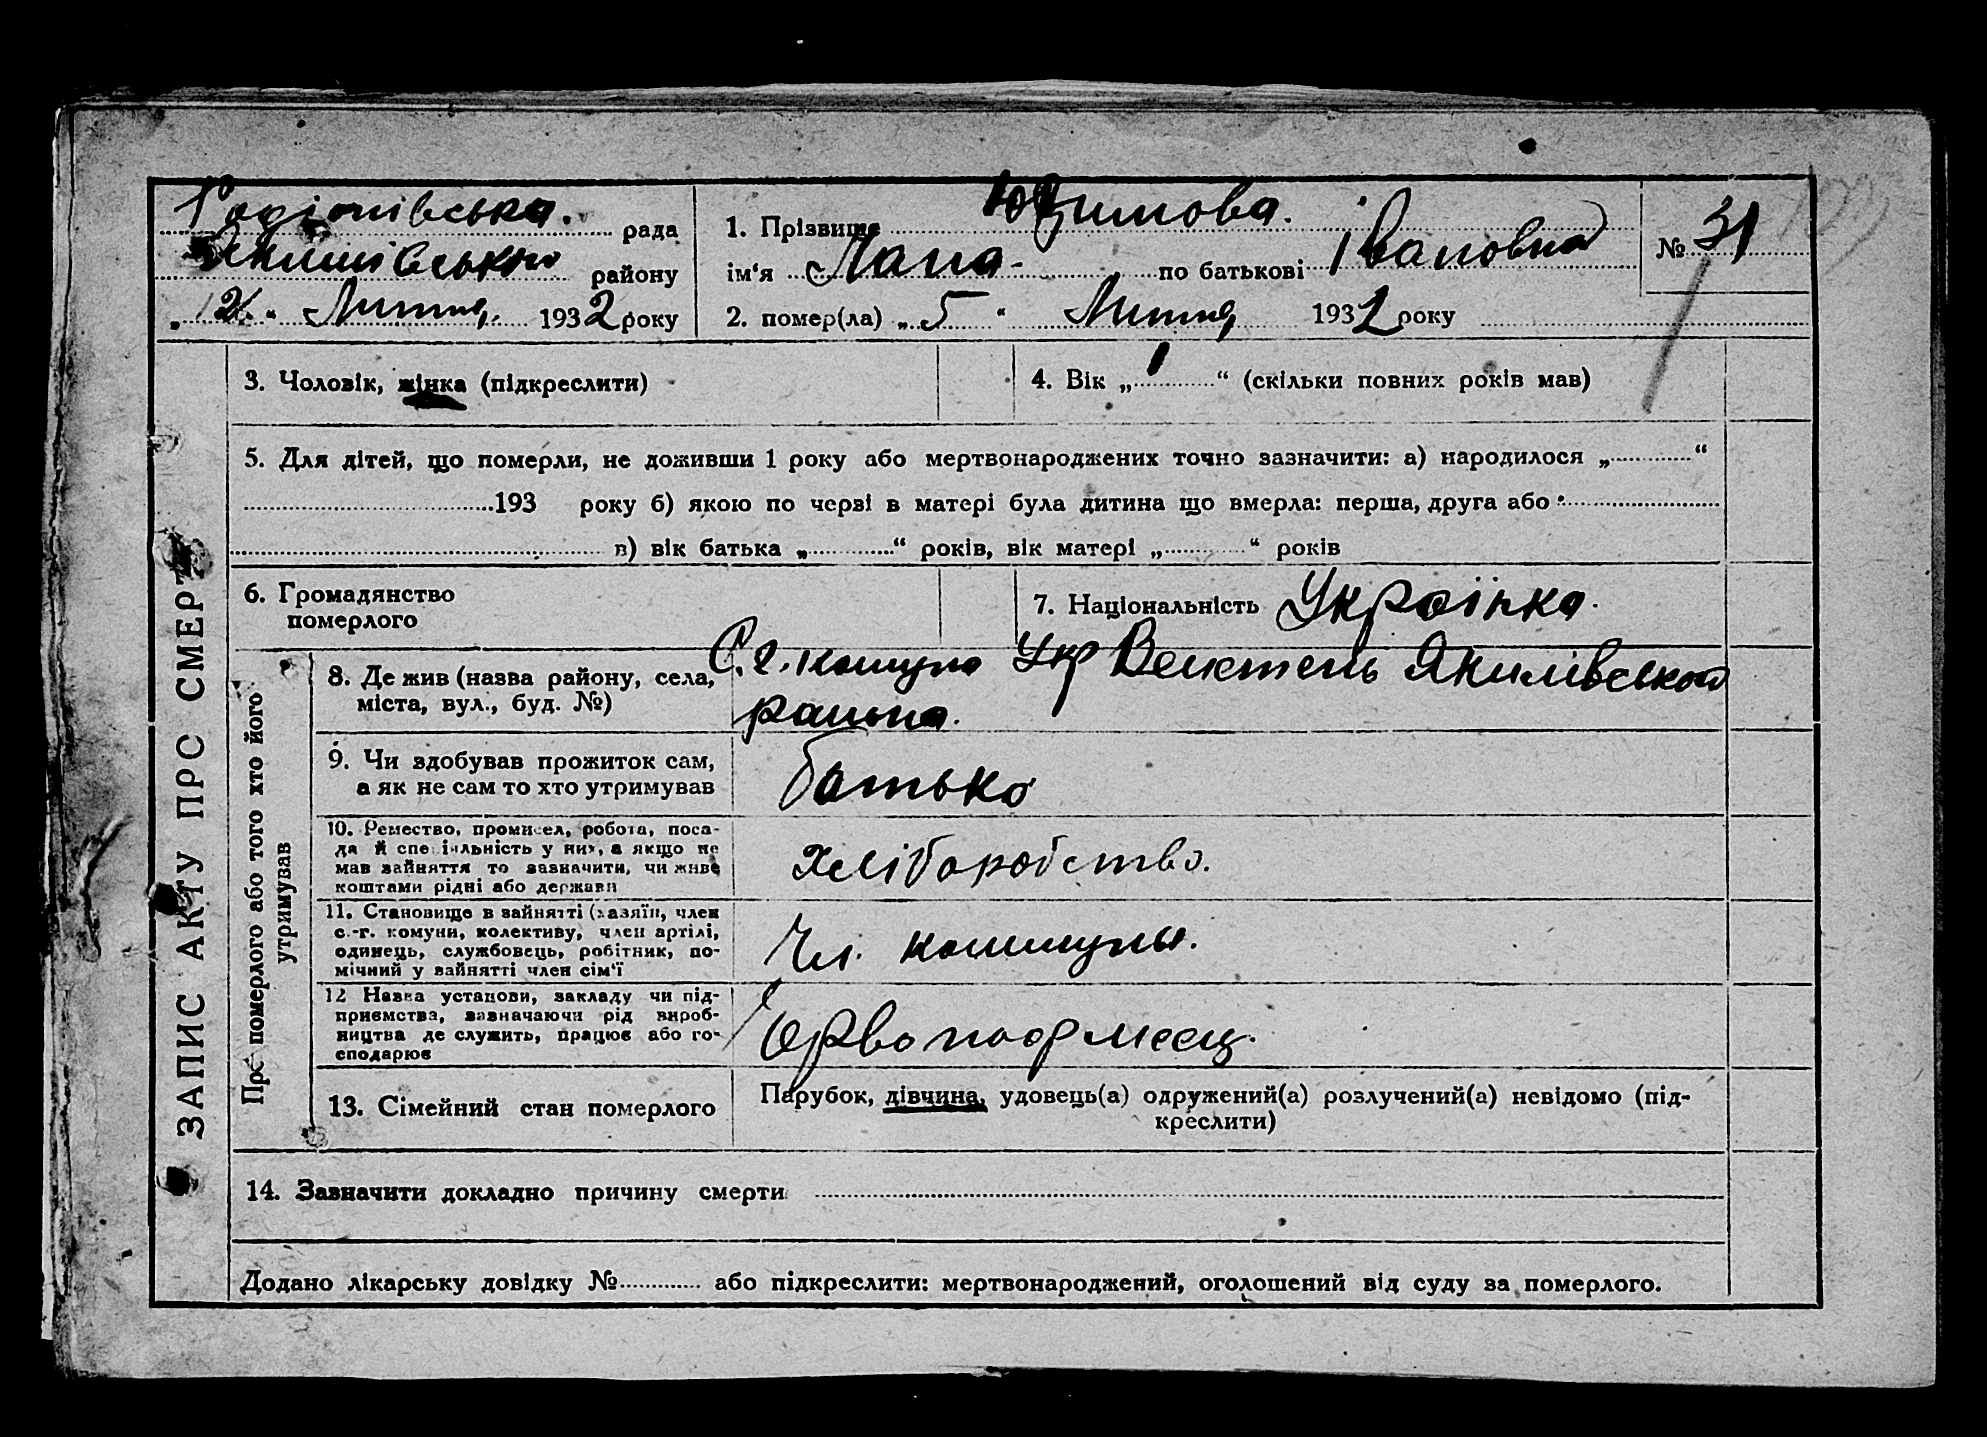 Родіонівська рада
Якимівського району
„ 21 “ Липня 1932 року
1. Прізвище Юхимова.
ім‘я Лана по батькові Івановна
2. помер(ла) „ 5 “ Липня 1932 року
№ 31
ЗАПИС АКТУ ПРО СМЕРТЬ
3. Чоловік, жінка (підкреслити)
4. Вік „ 1 “ (скільки повних років мав)
5. Для дітей, що померли, не доживши 1 року або мертвонароджених точно зазначити: а) народилося „ “
193 року б) якою по черві в матері була дитина що вмерла: перша, друга або
в) вік батька „ “ років, вік матері „ “ років
6. Громадянство
померлого
7. Національність Українка.
Про померлого або того хто його
утримував
8. Де жив (назва району, села,
міста, вул., буд. №)
С. г. комуна Укр Якимівського
района.
9. Чи здобував прожиток сам,
а як не сам то хто утримував
батько
10. Ремество, промисел, робота, поса-
да й спеціяльність у них, а якщо не
мав зайняття то зазначити, чи живе
коштами рідні або держави
Хліборобство.
11. Становище в зайнятті (хазяїн, член
с.-г. комуни, колективу, член артілі,
одинець, службовець, робітник, по-
мічний у зайнятті член сім‘ї
Чл. коммуны.
12 Назва установи, закладу чи під-
приємства, зазначаючи рід вироб-
ництва де служить, працює або го-
сподарює
13. Сімейний стан померлого
Парубок, дівчина, удовець(а) одружений(а) розлучений(а) невідомо (під-
креслити)
14. Зазначити докладно причину смерти
Додано лікарську довідку № або підкреслити: мертвонароджений, оголошений від суду за померлого.